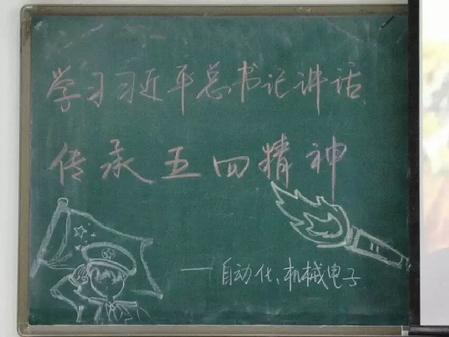 学习习近平总书记讲话
传承五四精神
——自动化、机械电子